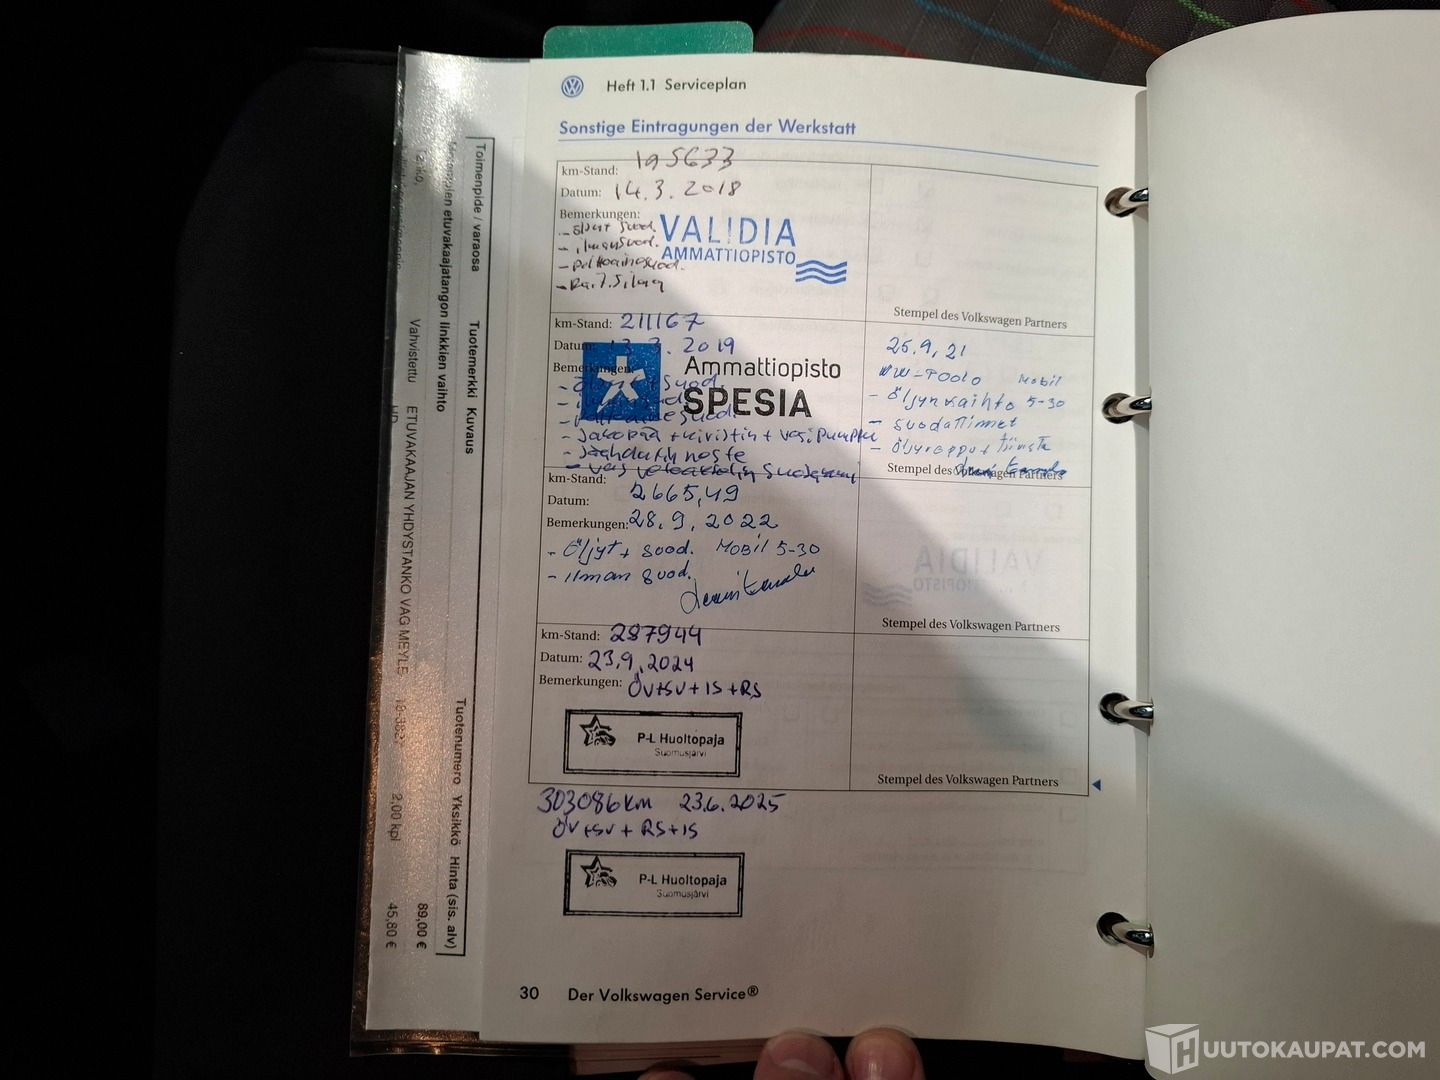 Heft 1.1 Serviceplan
Sonstige Eintragungen der Werkstatt
km-Stand: 195633
Datum: 14.3.2018
Bemerkungen:
- öljyt suod.
- ilmansuod.
- polttoainesuod.
- Rait.silag
VALIDIA
AMMATTIOPISTO
Stempel des Volkswagen Partners
km-Stand: 211167
Datum: 13.3.2019
Bemerkungen:
Ammattiopisto
SPESIA
- Jakopää + kiristin + vesipumppu
- Jäähdytinneste
25.9.21
Mobil
- Öljynvaihto 5-30
- suodattimet
Stempel des Volkswagen Partners
km-Stand: 2665,49
Datum:
Bemerkungen: 28.9.2022
- Öljyt + suod. Mobil 5-30
- ilman suod.
VALIDIA
Stempel des Volkswagen Partners
km-Stand: 287944
Datum: 23.9.2024
Bemerkungen: ÖV+SV+IS+RS
P-L Huoltopaja
Suomusjärvi
Stempel des Volkswagen Partners
303086km 23.6.2025
ÖV+SV+RS+IS
P-L Huoltopaja
Suomusjärvi
30 Der Volkswagen Service®
Toimenpide / varaosa Tuotemerkki Kuvaus Tuotenumero Yksikkö Hinta (sis. alv)
etuvakaajatangon linkkien vaihto 89,00 €
Vahvistettu ETUVAKAAJAN YHDYSTANKO VAG MEYLE 2,00 kpl 45,80 €
HD
HUUTOKAUPAT.COM